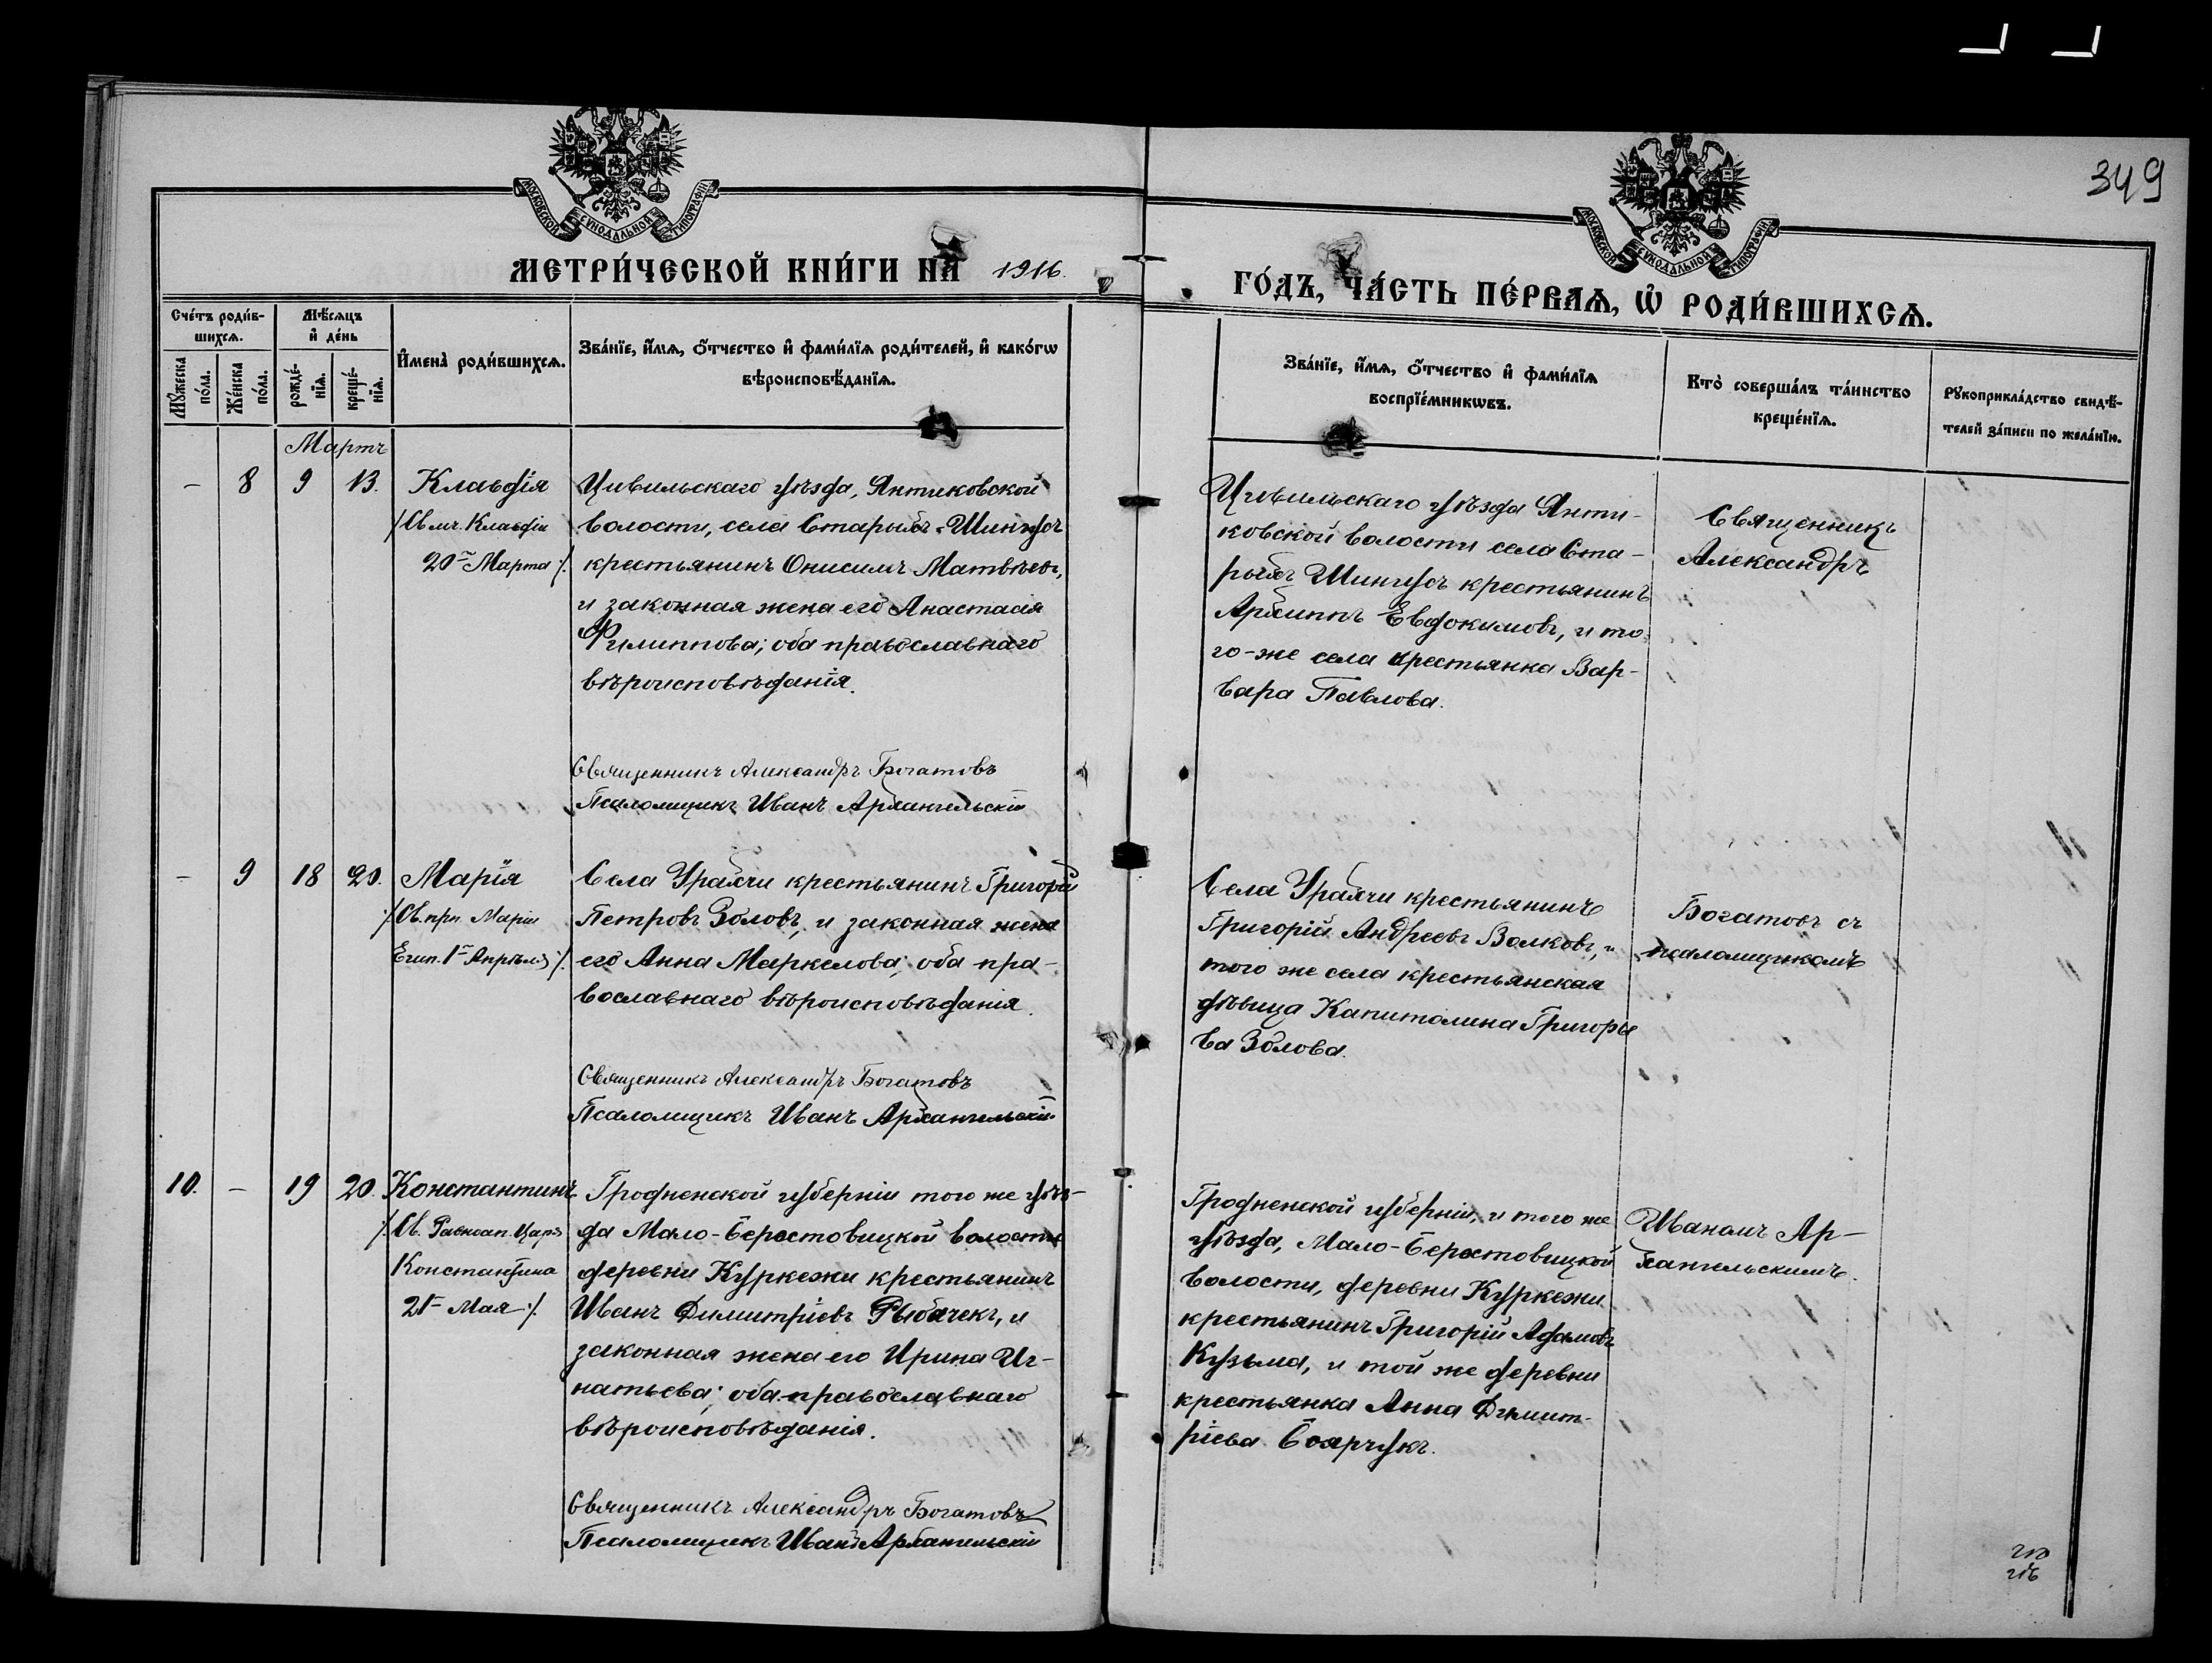 349
МОСКОВСКОЙ СѴНОДАЛЬНОЙ ТИПОГРАФІИ
МОСКОВСКОЙ СѴНОДАЛЬНОЙ ТИПОГРАФІИ
МЕТРИ́ЧЕСКОЙ КНИ́ГИ НА 1916.
ГО́ДЪ, ЧА́СТЬ ПЕ́РВАѦ, Ѽ РОДИ́ВШИХСѦ.
Сче́тъ роди́в-
шихсѧ.
Мꙋ́жеска по́ла.
Же́нска по́ла.
Мѣ́сѧцъ
и҆ де́нь
рожде́-
нїѧ.
креще́-
нїѧ.
И҆мена̀ роди́вшихсѧ.
Зва́нїе, и҆́мѧ, ѻ҆́тчество и҆ фами́лїѧ роди́телей, и҆ како́гѡ
вѣроисповѣ́данїѧ.
Зва́нїе, и҆́мѧ, ѻ҆́тчество и҆ фами́лїѧ
воспрїе́мникѡвъ.
Кто̀ соверша́лъ та́инство
креще́нїѧ.
Рꙋкоприкла́дство свидѣ́-
телей за́писи по жела́нїю.
Мартъ
– 8 9 13.
Клавдія
/Св. мч. Клавдіи
20го Марта/.
Цивильскаго уѣзда, Янтиковской
волости, села Старыхъ-Шингусъ
крестьянинъ Онисимъ Матвѣевъ,
и законная жена его Анастасія
Филиппова; оба православнаго
вѣроисповѣданія.
Священникъ Александръ Богатовъ
Псаломщикъ Иванъ Архангельскій
Цивильскаго уѣзда Янти-
ковской волости села Ста-
рыхъ Шингусъ крестьянинъ
Архиппъ Евдокимовъ, и то-
го-же села крестьянка Вар-
вара Павлова.
Священникъ
Александръ
– 9 18 20.
Марія
/Св. прп. Маріи
Егип. 1го Апрѣля/.
Села Урахчи крестьянинъ Григорій
Петровъ Золовъ, и законная жена
его Анна Маркелова; оба пра-
вославнаго вѣроисповѣданія.
Священникъ Александръ Богатовъ
Псаломщикъ Иванъ Архангельскій
Села Урахчи крестьянинъ
Григорій Андреевъ Волковъ, и
того же села крестьянская
дѣвица Капитолина Григорье
ва Золова.
Богатовъ съ
псаломщикомъ
10. – 19 20.
Константинъ
/Св. Равноап. Царя
Константина
21го Мая/.
Гродненской губерніи того же уѣз-
да Мало-Берестовицкой волости
деревни Куркежи крестьянинъ
Иванъ Димитріевъ Рыбачекъ, и
законная жена его Ирина Иг-
натьева; оба православнаго
вѣроисповѣданія.
Священникъ Александръ Богатовъ
Псаломщикъ Иванъ Архангельскій
Гродненской губерніи, и того же
уѣзда, Мало-Берестовицкой
волости, деревни Куркежи
крестьянинъ Григорій Адамовъ
Кузьма, и той же деревни
крестьянка Анна Димит-
ріева Боярчукъ.
Иваномъ Ар-
хангельскимъ.